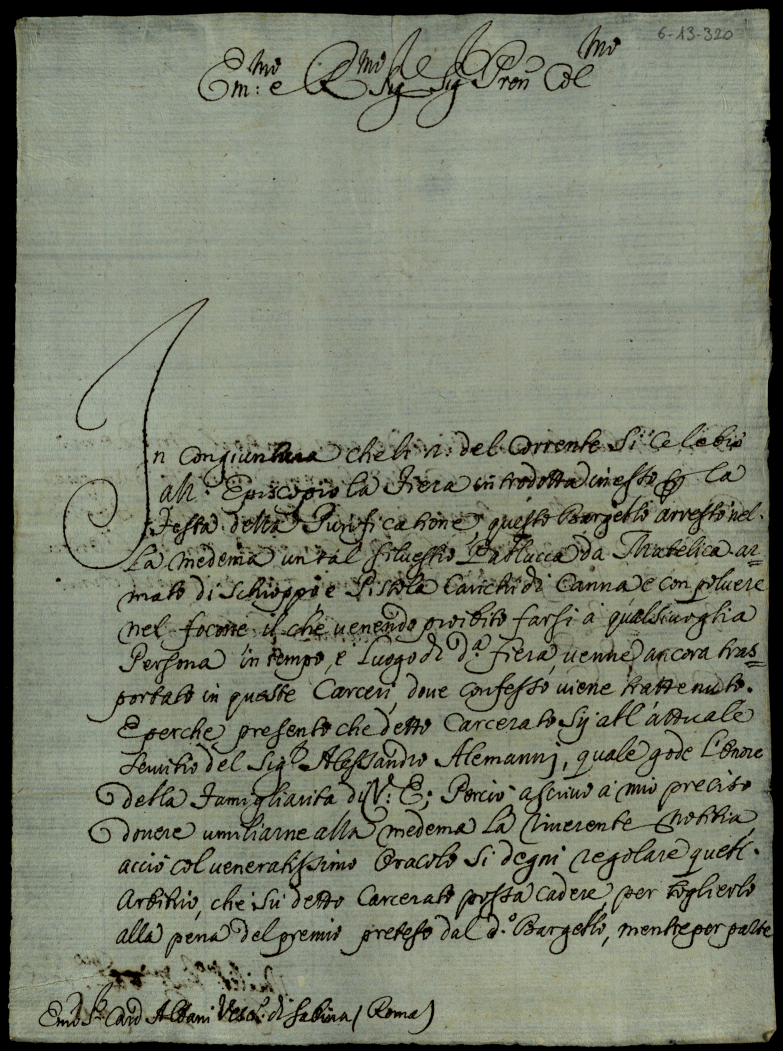 6-13-320
Em:mo e Rmo Sig Sig Pron Colmo
In congiuntura che li 2: del Corrente Si celebrò
all' Episcopio la Fiera introdotta in esso per la
Festa della Purificatione, questo Bargello arrestò nel-
La medema un tal Silvestro Patlucca da Matelica ar=
mato di Schioppo e Pistola Carichi di Canna e con polvere
nel focone il che venendo proibito farsi à qualsivoglia
Persona in tempo, e Luogo di d.a fiera, venne ancora tras=
portato in queste Carceri, dove confesso viene trattenuto.
E perche presento che detto Carcerato Sij all' attuale
Servitio del Sig.r Alessandro Alemanni, quale gode L'onore
della Famigliarità di V: E; Perciò ascrivo à mio preciso
dovere umiliarne alla medema La riverente notitia
acciò col veneratissimo Oracolo Si degni regolare quell'
Arbitrio, che Su detto Carcerato possa cadere, per toglierlo
alla pena del premio preteso dal d.o Bargello, mentre per parte
Emo S.r Card Albani Vesc.o di Sabina (Roma)